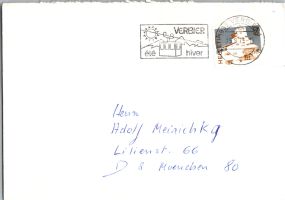 VERBIER
été hiver
Herrn
Adolf Meinich Kg
Lilienst. 66
D 8 Muenchen 80